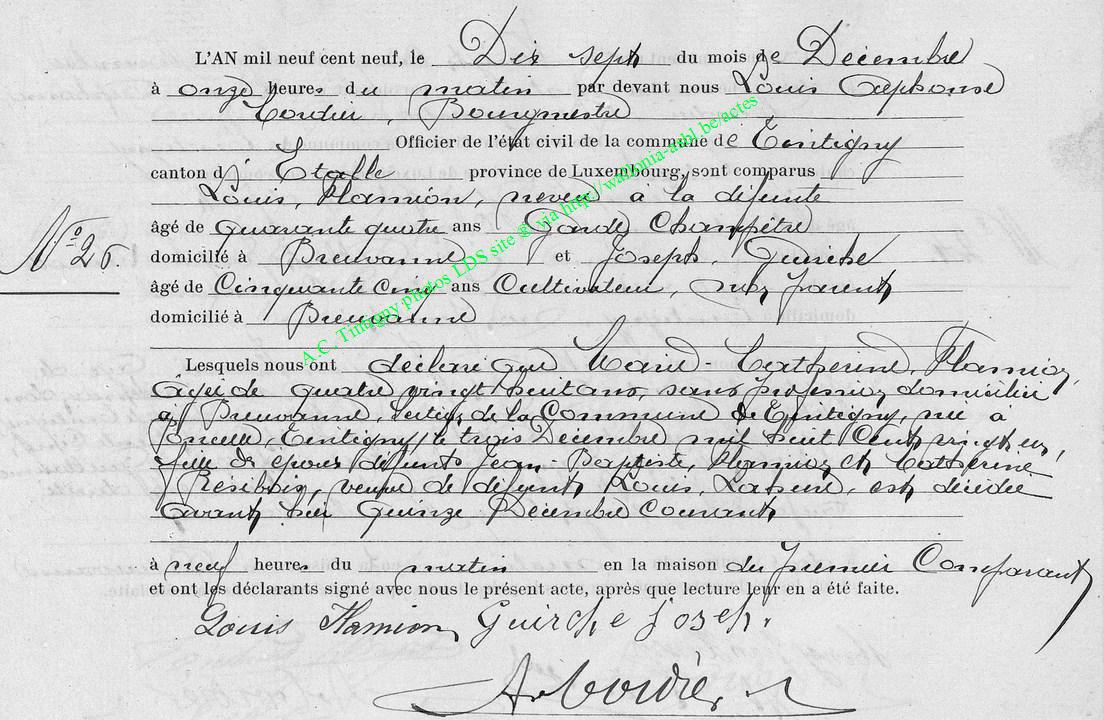 L'AN mil neuf cent neuf, le Dix sept du mois de Décembre
à onze heures du matin par devant nous Louis Alphonse
Cordier, Bourgmestre
Officier de l'état civil de la commune de Tintigny
canton d' Etalle province de Luxembourg, sont comparus
Louis, Hamion, neveu à la défunte
âgé de quarante quatre ans Garde Champêtre
N° 26.
domicilié à Breuvanne et Joseph, Guirche
âgé de Cinquante cinq ans Cultivateur, non parent
domicilié à Breuvanne
Lesquels nous ont déclaré que Marie-Catherine, Hamion,
Agée de quatre vingt huit ans, sans profession domiciliée
à Breuvanne, section de la Commune de Tintigny, née à
Poncelle, Tintigny, le trois Décembre mil huit cent vingt un,
fille des époux défunts Jean-Baptiste, Hamion et Catherine
Résibois, veuve de défunt Louis, est décédée
avant hier Quinze Décembre Courant
à neuf heures du matin en la maison du premier Comparant
et ont les déclarants signé avec nous le présent acte, après que lecture leur en a été faite.
Louis Hamion Guirche Joseph.
A. Cordier
A.C. Tintigny photos LDS site ® via http://wallonia-asbl.be/actes